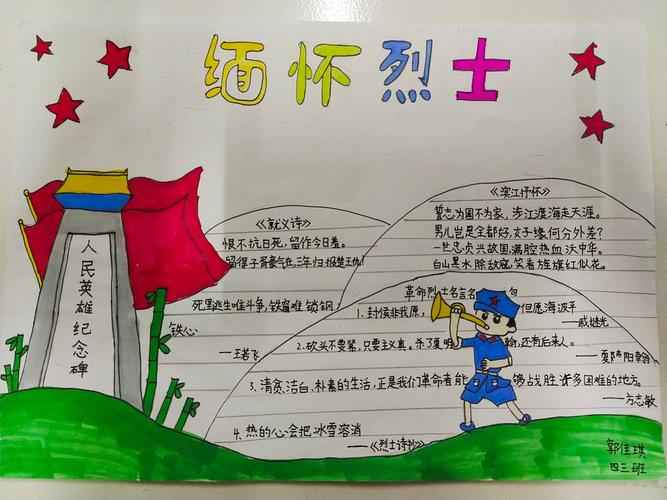 缅怀烈士
人民英雄纪念碑
《就义诗》
恨不抗日死,留作今日羞。
留得子胥豪气在,三年归报楚王仇!
死里逃生唯斗争,铁窗难锁钢
铁心
——王若飞
《滨江抒怀》
誓志为国不为家,涉江渡海走天涯。
男儿岂是全都好,女子缘何分外差?
一世忠贞兴故国,满腔热血沃中华。
白山黑水除敌寇,笑看旌旗红似花。
革命烈士名言名句
1、封侯非我原, 但愿海波平
——戚继光
2、砍头不要紧,只要主义真。杀了夏 翰,还有后来人。
——夏 翰
3、清贫,洁白,朴素的生活,正是我们革命者能 够战胜许多困难的地方。
——方志敏
4、热的心会把冰雪溶消
——《烈士诗抄》
郭佳琪
四三班